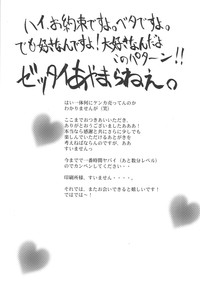 ハイ。お約束ですよ。ベタですよ。
でも好きなんですよ！大好きなんだよ
このパターン！！
ゼッタイあやまらねえ。
はい一体何にケンカ売ってんのか
わかりませんが（笑）
ここまでおつきあいいただき、
ありがとおうございましたあああ！
本当なら感謝と共にさらに少しでも
楽しんでいただけるあとがきを
考えねばならんのですが、ああ
すいませんっ
今までで一番時間ヤバイ（あと数分レベル）
のでカンベンしてください・・・
印刷所様、すいません・・・・。
それでは、またお会いできると嬉しいです！
ではでは～！